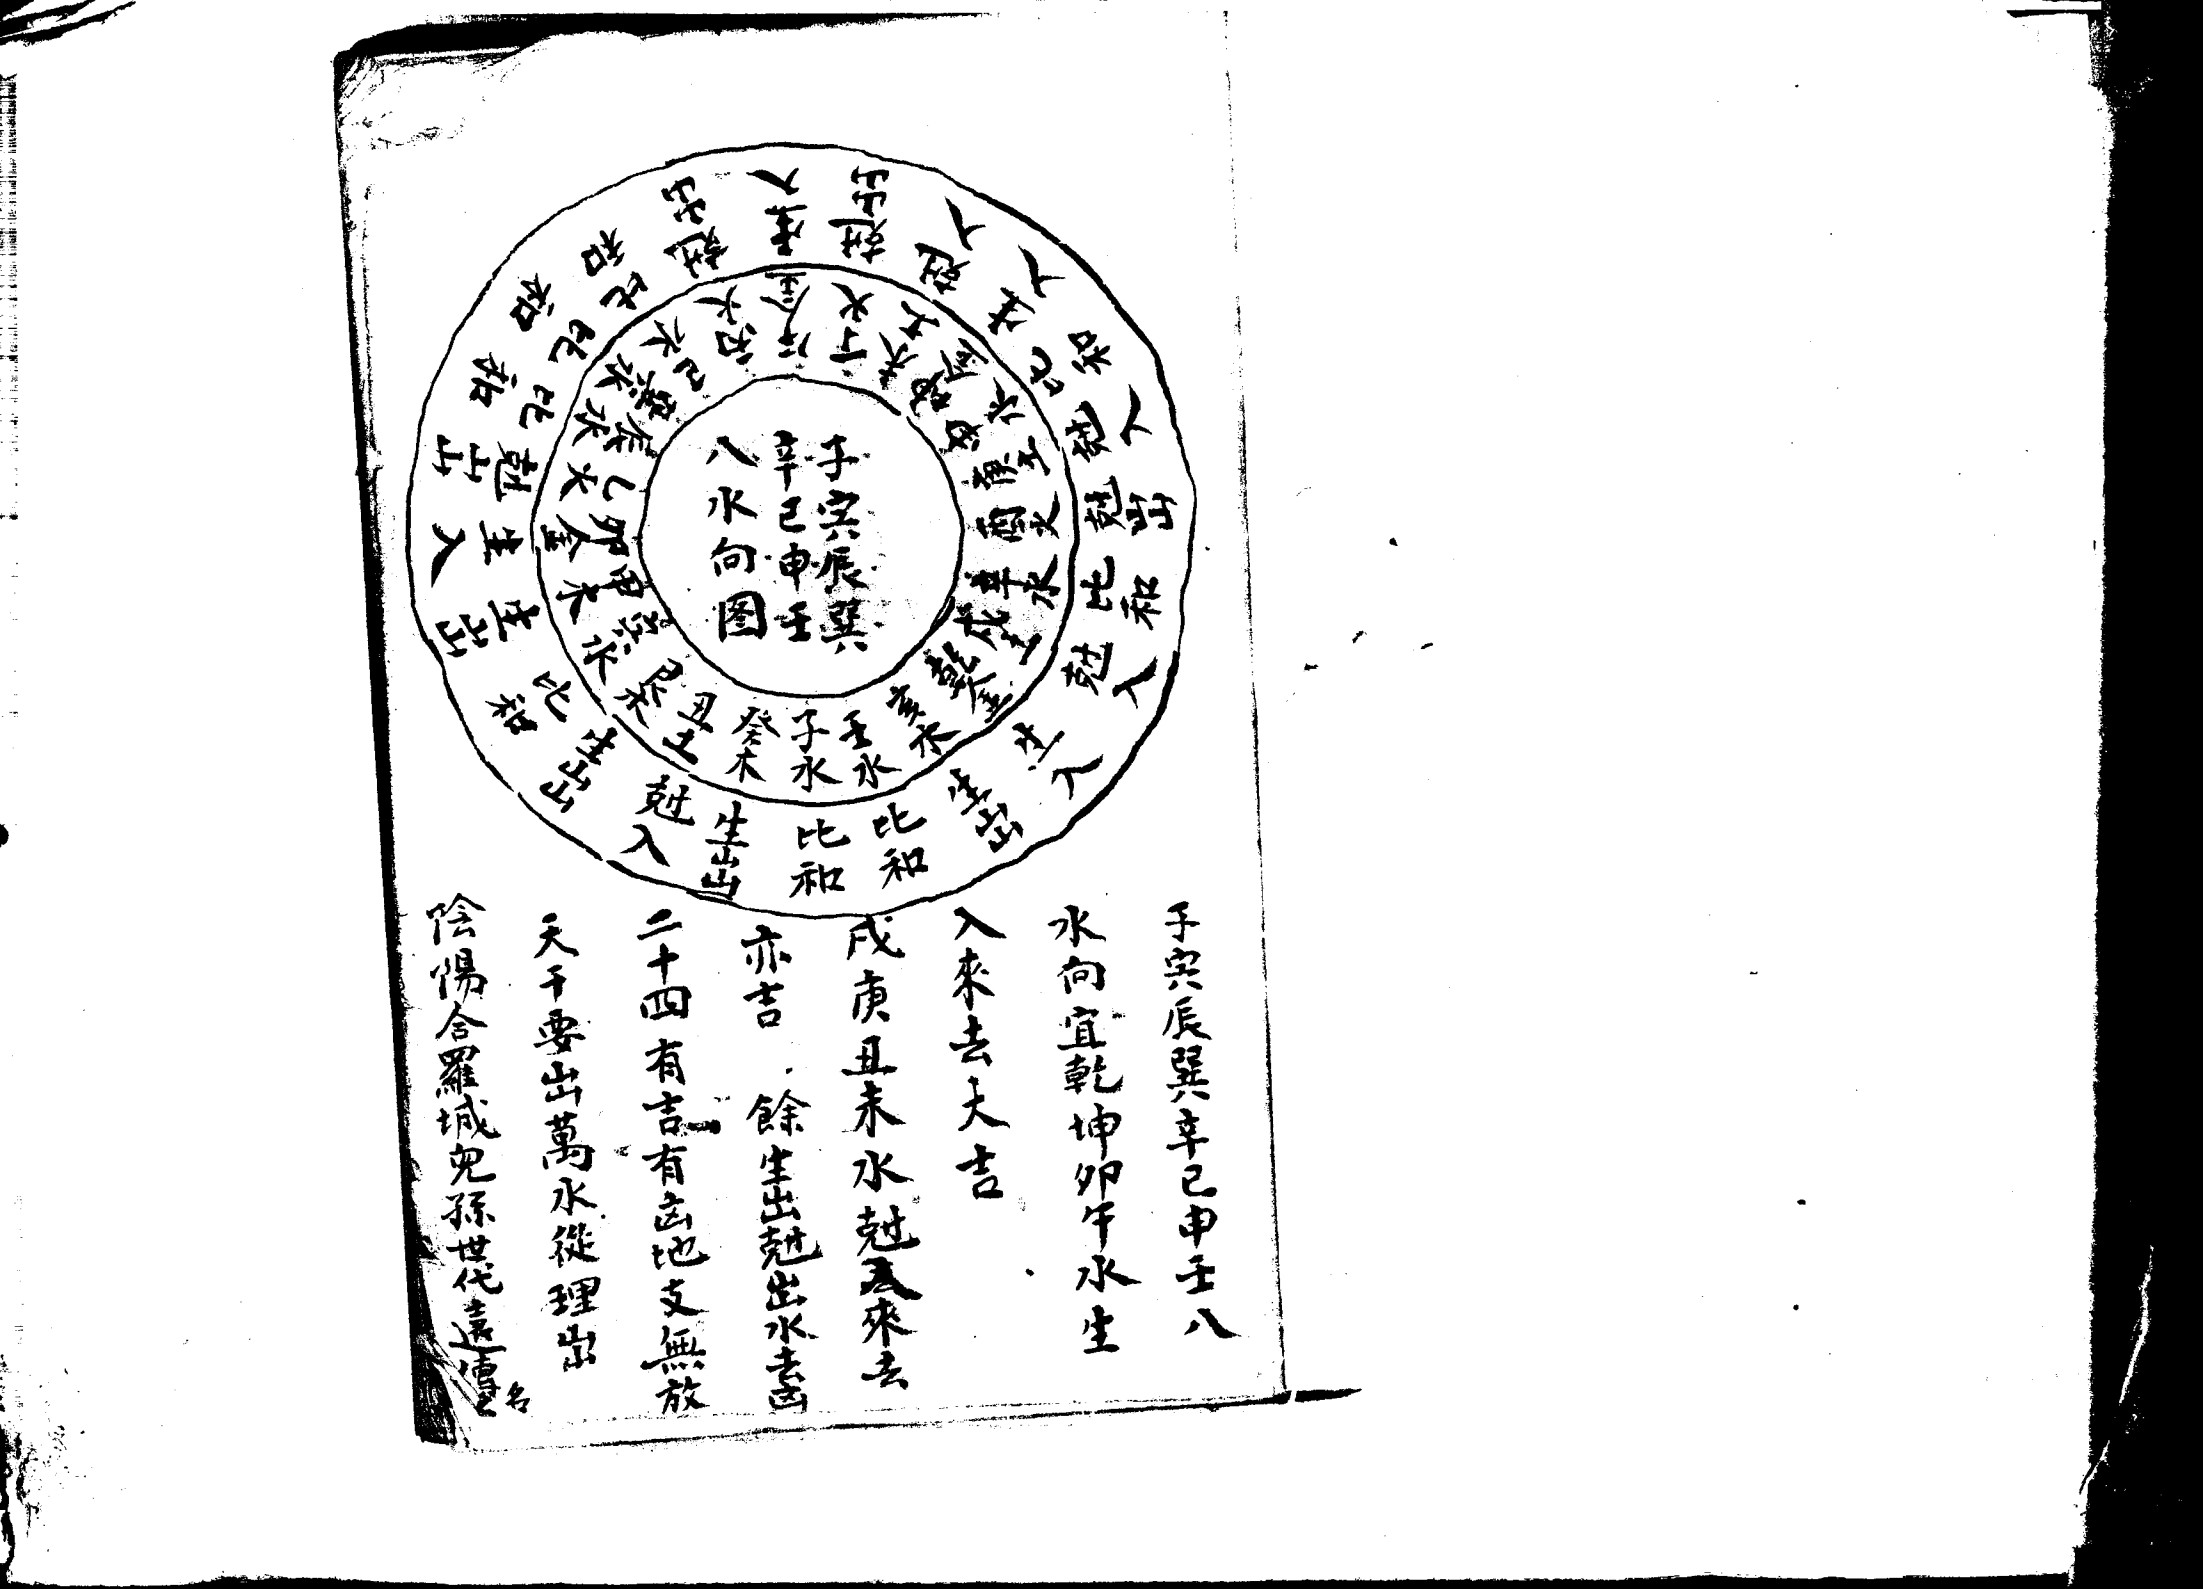 子寅辰巽
辛巳申壬
八水向图
子水
比和
癸木
生出
丑土
尅入
艮木
生出
寅水
比和
甲木
生出
卯金
生入
乙火
尅出
辰水
比和
巽水
比和
巳水
比和
丙火
尅出
午金
生入
丁火
尅出
未土
尅入
坤金
生入
申水
比和
庚土
尅入
酉火
尅出
辛水
比和
戌土
尅入
乾金
生入
亥木
生出
壬水
比和
子寅辰巽辛巳申壬八
水向宜乾坤卯午水生
入來去大吉
戌庚丑未水尅入來去
亦吉 餘生出尅出水去凶
二十四有吉有凶地支無放
天干要出萬水從理出
陰陽合羅城兒孫世代遠傳名